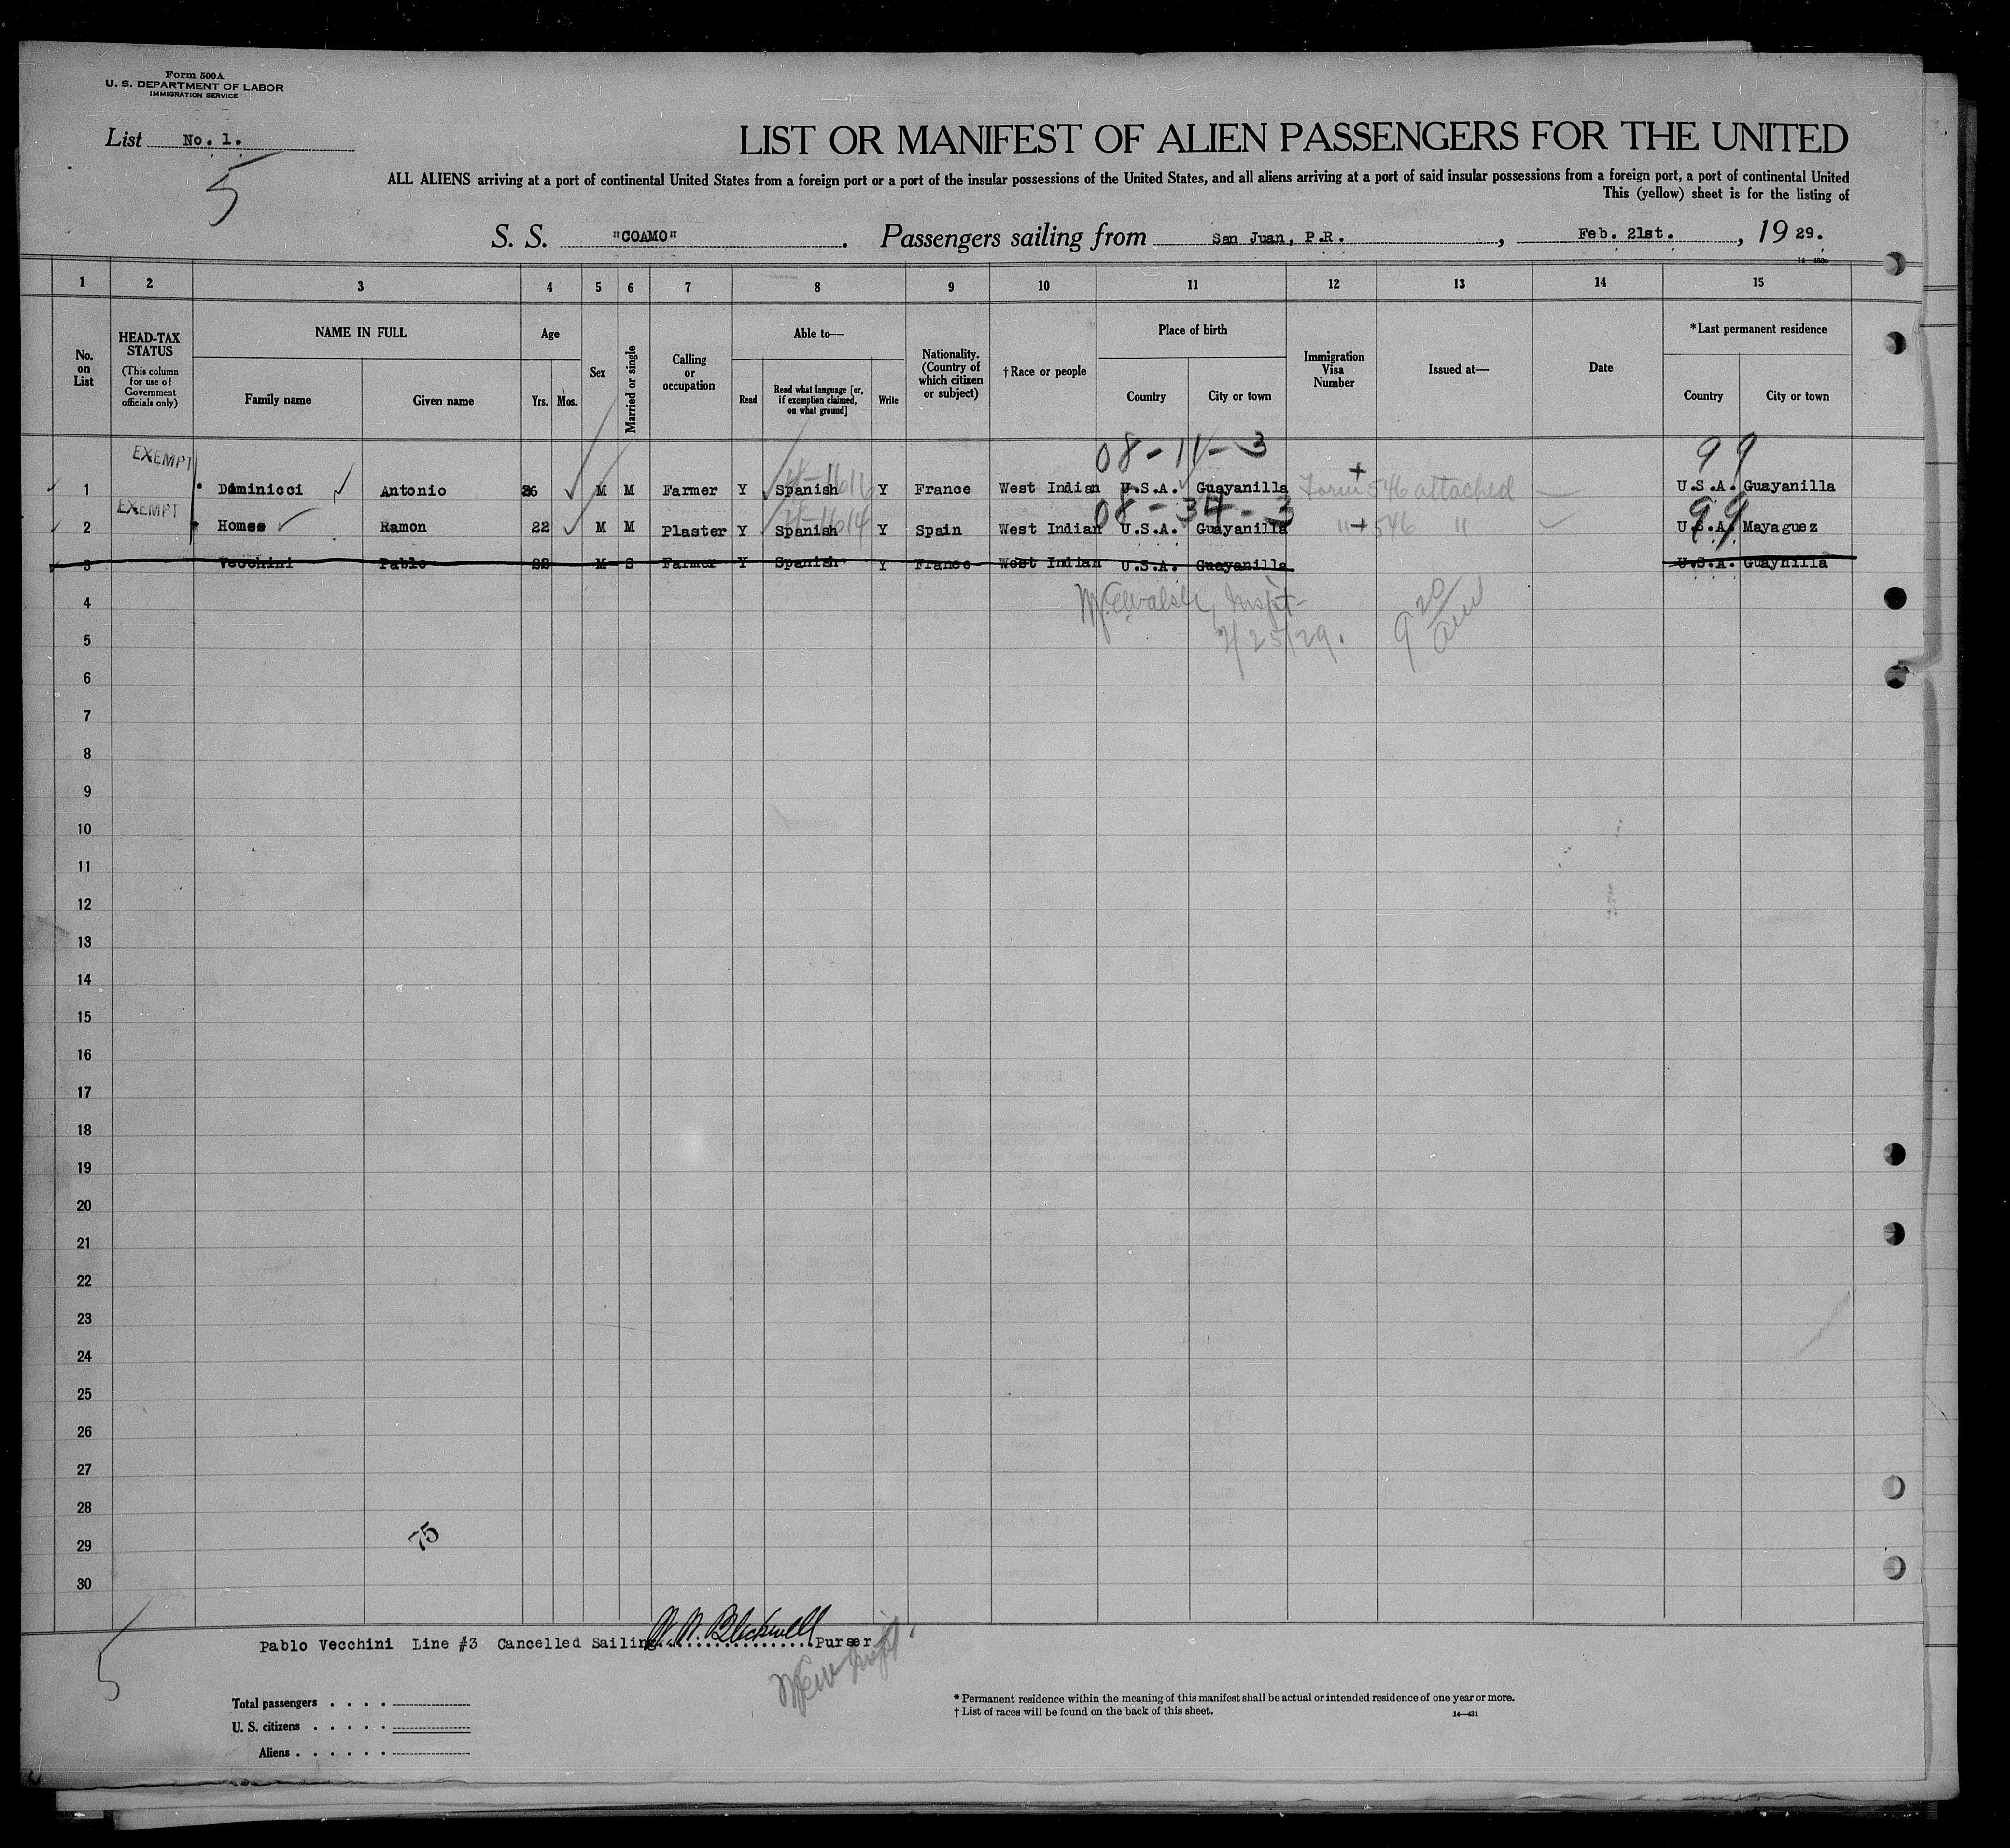 Form 500A
U. S. DEPARTMENT OF LABOR
IMMIGRATION SERVICE
List No. 1.
5
LIST OR MANIFEST OF ALIEN PASSENGERS FOR THE UNITED
ALL ALIENS arriving at a port of continental United States from a foreign port or a port of the insular possessions of the United States, and all aliens arriving at a port of said insular possessions from a foreign port, a port of continental United
This (yellow) sheet is for the listing of
S. S. "COAMO". Passengers sailing from San Juan, P.R., Feb. 21st., 1929.
1 2 3 4 5 6 7 8 9 10 11 12 13 14 15
No. on List
HEAD-TAX STATUS
(This column for use of Government officials only)
NAME IN FULL
Family name Given name
Age
Yrs. Mos.
Sex
Married or single
Calling or occupation
Able to—
Read
Read what language [or, if exemption claimed, on what ground]
Write
Nationality. (Country of which citizen or subject)
†Race or people
Place of birth
Country City or town
Immigration Visa Number
Issued at—
Date
*Last permanent residence
Country City or town
08-11-3 99
EXEMPT
1 Dominicci Antonio 26 M M Farmer Y Spanish Y France West Indian U.S.A. Guayanilla Form 546 attached U.S.A. Guayanilla
08-34-3 99
EXEMPT
2 Homes Ramon 22 M M Plaster Y Spanish Y Spain West Indian U.S.A. Guayanilla " 546 " U.S.A. Mayaguez
3 Vecchini Pablo 22 M S Farmer Y Spanish Y France West Indian U.S.A. Guayanilla U.S.A. Guaynilla
4
Inspt-
5
2/25/29.
9 20 AM
6
7
8
9
10
11
12
13
14
15
16
17
18
19
20
21
22
23
24
25
26
27
28
29
30
75
5
Pablo Vecchini Line #3 Cancelled Sailing. Purser
Total passengers
U. S. citizens
Aliens
* Permanent residence within the meaning of this manifest shall be actual or intended residence of one year or more.
† List of races will be found on the back of this sheet.
14—431